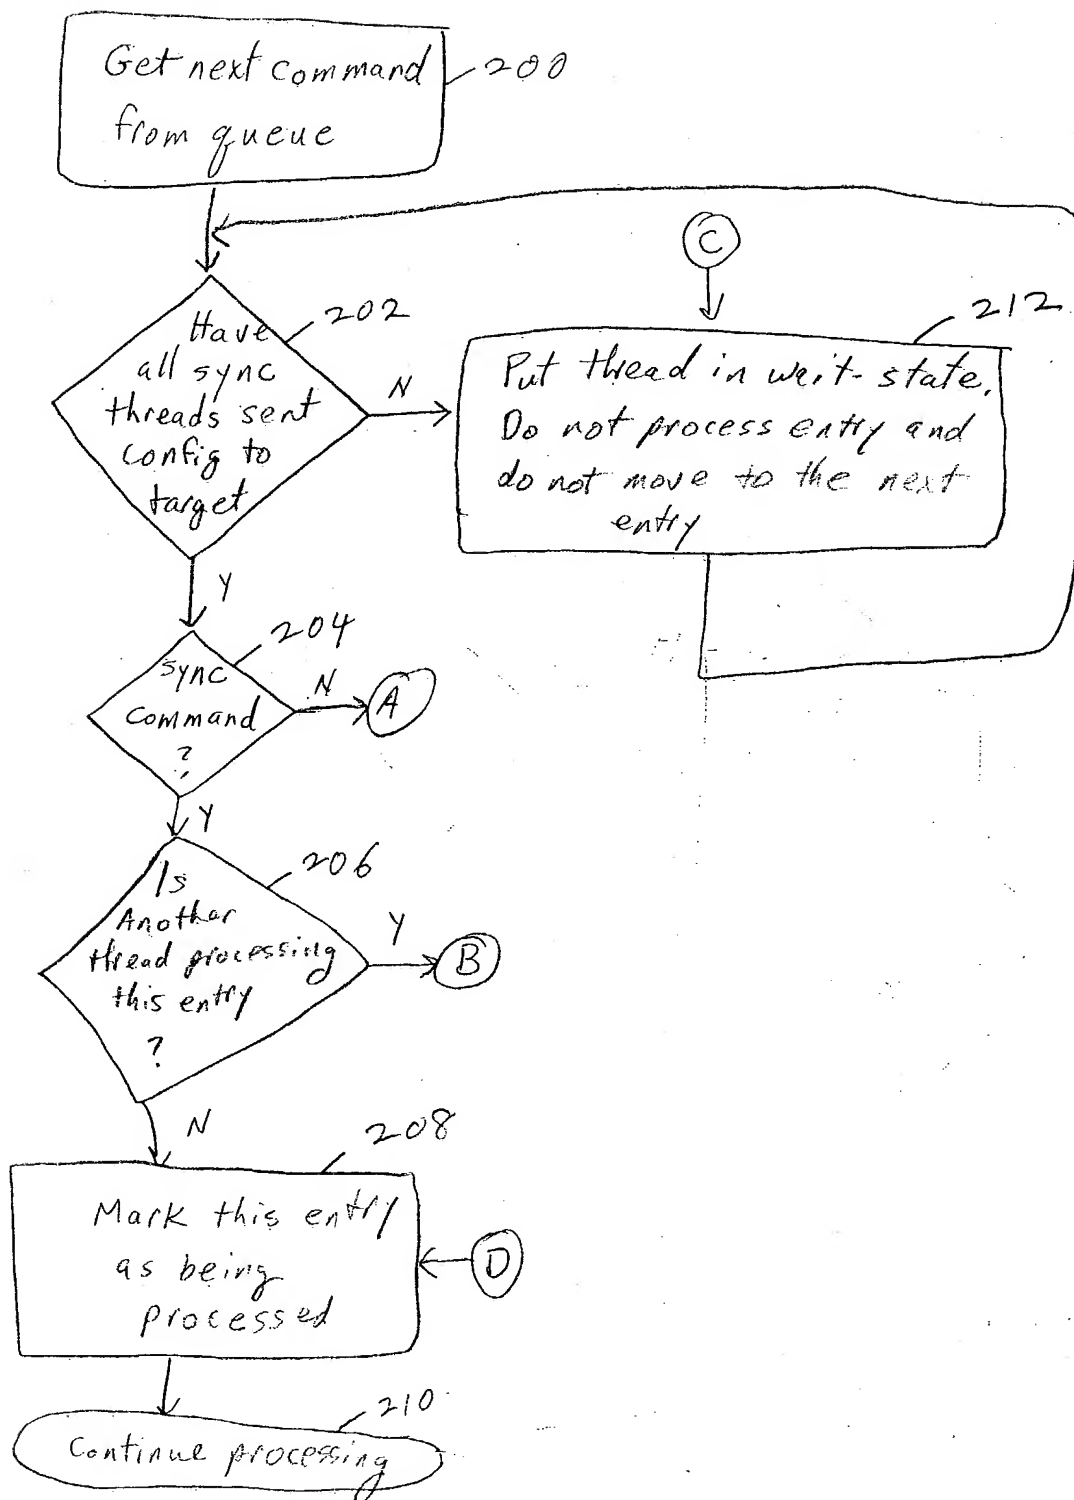 Get next command
from queue
200
C
202
Have
all sync
threads sent
config to
target
N
212
Put thread in wait-state.
Do not process entry and
do not move to the next
entry
Y
204
sync
command
?
N
A
Y
206
Is
Another
thread processing
this entry
?
Y
B
N
208
Mark this entry
as being
processed
D
210
Continue processing